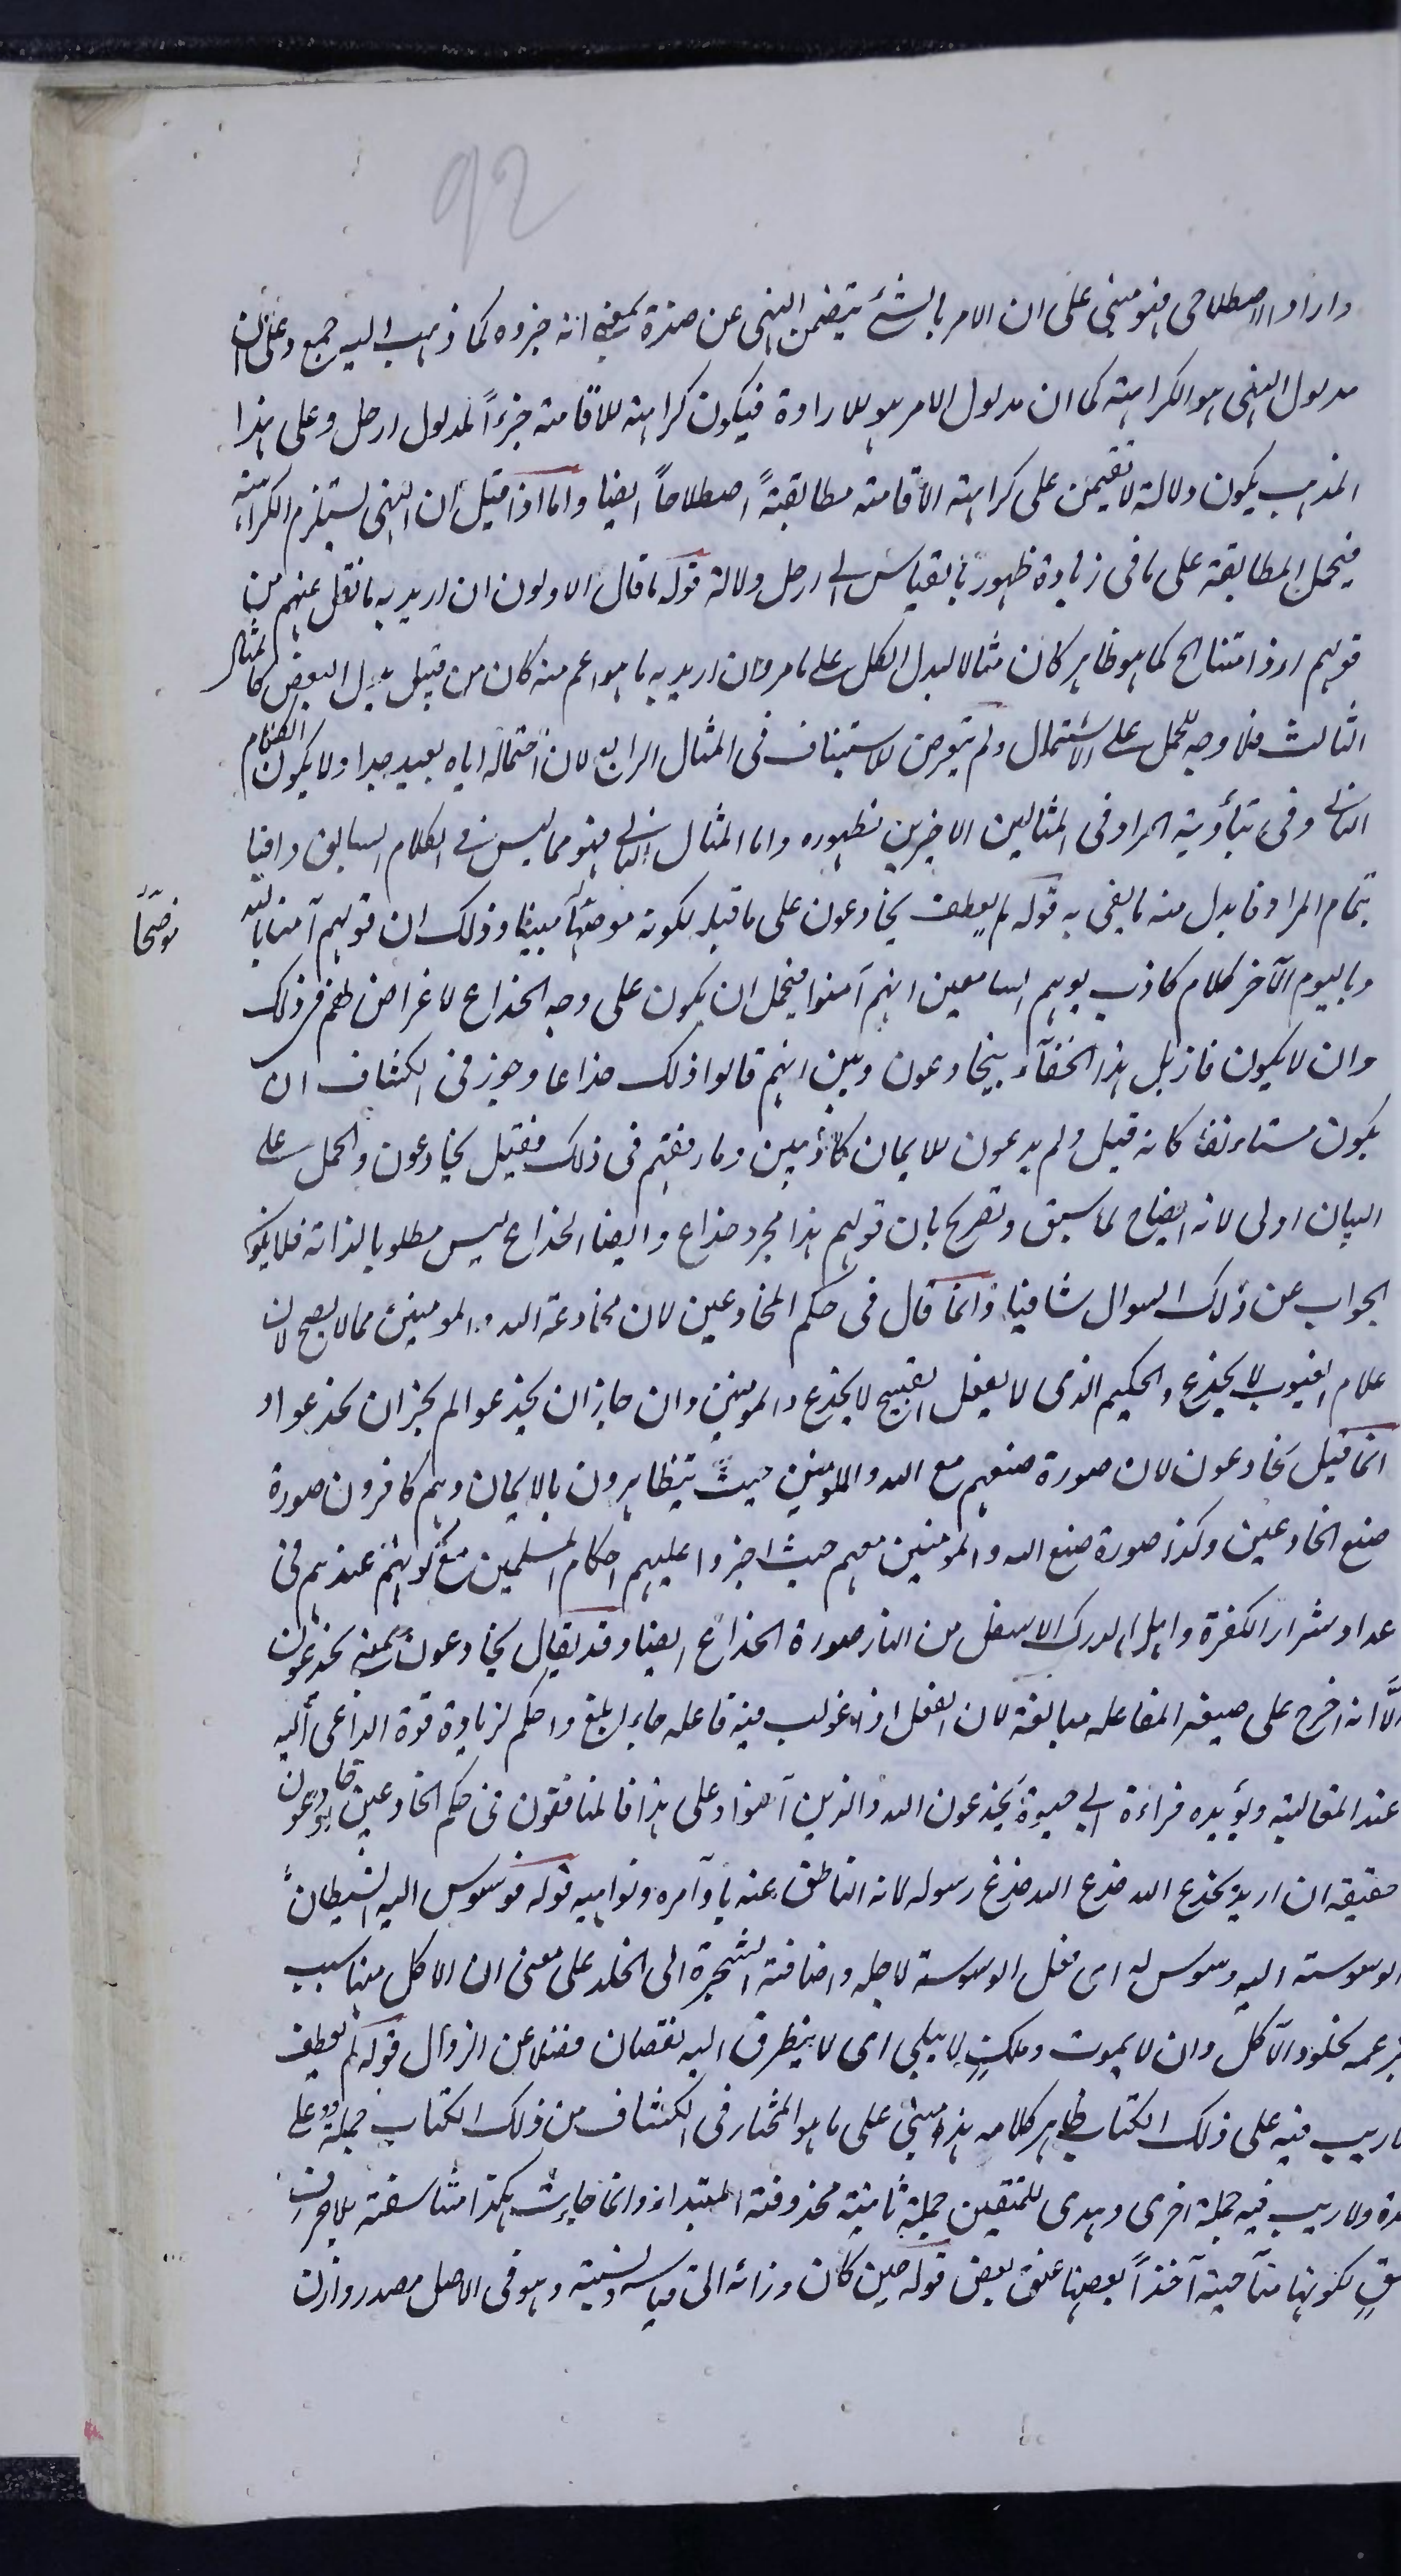 92
واراد الاصطلاحى فهو مبنى على ان الامر بالشئ يتضمن النهى عن ضده بمعنى انه جزوه كما ذهب اليه جمع وعلى ان
مدلول النهى هو الكراهته كما ان مدلول الامر هو للارادة فيكون كراهته للاقامته جزءاً لمدلول ارحل وعلى هذا
المذهب يكون دلالة لا تقيمن على كراهته الاقامته مطابقةً اصطلاحاً ايضا واما اذا قيل ان النهى يستلزم الكراهته
فيحمل المطابقة على ما فى زيادة ظهور بالقياس الى ارحل ودلالة قوله ما قال الاولون ان اريد به ما نقل عنهم من
قولهم اءذا متنا الخ كما هو ظاهر كان مثالا لبدل الكل على ما مر وان اريد به ما هو اعم منه كان من قبيل بدل البعض كالمثال
الثالث فلا وجه للحمل على الاشتمال ولم يتعرض للاستيناف فى المثال الرابع لان احتماله اياه بعيد جدا ولا يكون الكلام
الثانى وفى بتأدية المراد فى المثالين الاخيرين لظهوره واما المثال الثانى فهو مما ليس فى الكلام السابق وافيا
بتمام المراد فابدل منه ما يفى به قوله لم يعطف يخادعون على ما قبله لكونه موضحاً مبينا وذلك ان قولهم آمنا بالله
موضحاً
وباليوم الآخر كلام كاذب يوهم السامعين انهم آمنوا فيحمل ان يكون على وجه الخداع لاغراض لهم فى ذلك
وان لا يكون فازيل هذا الخفآء بيخادعون وبين انهم قالوا ذلك خداعا وجوز فى الكشاف ان
يكون مستاءنفا كانه قيل ولم يدعون للايمان كاذبين وما رفقهم فى ذلك فقيل يخادعون والحمل على
البيان اولى لانه ايضاح لما سبق وتصريح بان قولهم هذا مجرد خداع وايضا الخداع ليس مطلوبا لذاته فلا يكون
الجواب عن ذلك السوال شافيا وانما قال فى حكم المخادعين لان مخادعة الله والمومنين مما لا يصح لان
علام الغيوب لا يخدع والحكيم الذى لا يفعل القبيح لا يخدع والمومنين وان جاز ان يخدعوا لم يجز ان يخدعوا و
انما قيل يخادعون لان صورة صنعهم مع الله والمومنين حيث يتظاهرون بالايمان وهم كافرون صورة
صنع الخادعين وكذا صورة صنع الله والمومنين معهم حيث اجروا عليهم احكام المسلمين مع كونهم عندهم فى
عداد شرار الكفرة واهل الدرك الاسفل من النار صورة الخداع ايضا وقد يقال يخادعون بمعنى يخدعون
الّا انه اخرج على صيغة المفاعله مبالغة لان الفعل اذا غولب فيه فاعله جاء ابلغ واحكم لزيادة قوة الداعى اليه
عند المغالبته ويؤيده قراءة ابى حيوة يَخدعون الله والذين آمنوا وعلى هذا فالمنافقون فى حكم الخادعين لا خادعون
حقيقة ان اريد بخدع الله خدع الله خدع رسوله لانه الناطق عنه باوآمره ونواهيه قوله فوسوس اليه الشيطان
الوسوسته اليه وسوس له اى فعل الوسوسة لاجله واضافته الشجرة الى الخلد على معنى ان الاكل منها سبب
بزعمه لخلود الآكل وان لا يموت وملكٍ لا يبلى اى لا يتطرق اليه نقصان فضلا عن الزوال قوله لم يعطف
لاريب فيه على ذلك الكتاب ظاهر كلامه هذا مبنى على ما هو المختار فى الكشاف من ذلك الكتاب جملة على
حدة ولا ريب فيه جملة اخرى وهدى للمتقين جملة ثالثة محذوفته المبتداء وانما جاءت هكذا متناسقة بلا حرف
نسقٍ لكونها متآخيته آخذاً بعضها عنق بعض قوله حين كان وزانه الى قياسه ونسبته وهو فى الاصل مصدر وازن